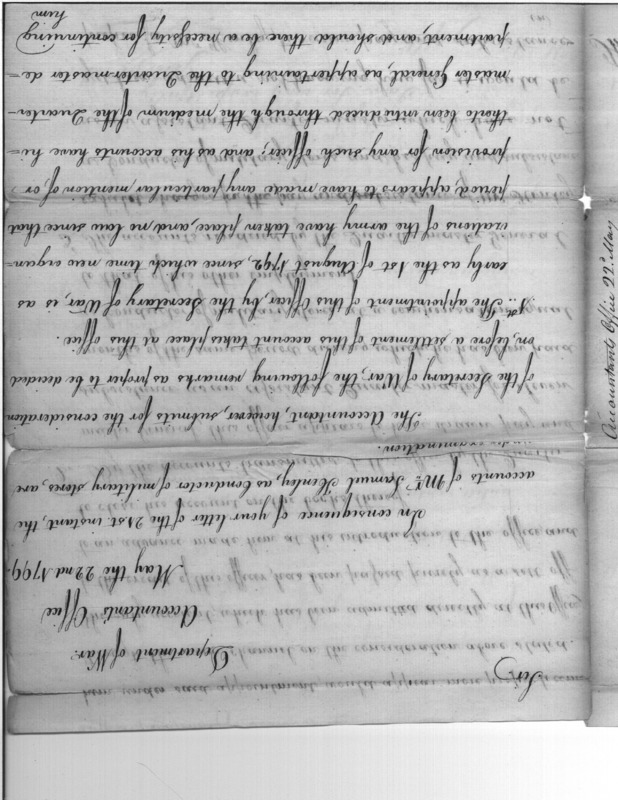 Sir,
Department of War.
Accountants Office
May the 22nd 1799.
In consequence of your letter of the 21st. instant, the
accounts of Mr. Samuel Henley, as Conductor of military stores, are
examination.
The Accountant, however, submits for the consideration
of the Secretary of War, the following remarks as proper to be decided
on, before a settlement of this account takes place at this office.
1st.. The appointment of this Officer, by the Secretary of War, is as
early as the 1st of August 1792, since which time new organ-
izations of the army have taken place, and no law since that
period, appears to have made any particular mention of, or
provision for any such officer; and as his accounts have hi-
therto been introduced through the medium of the Quarter-
master General, as appertaining to the Quartermaster de-
partment, and should there be a necessity for continuing
him
Accountants Office 22d. May